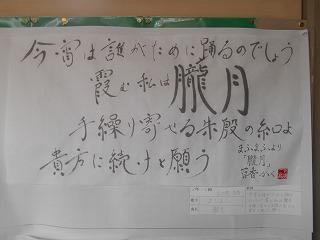 今宵は誰がために踊るのでしょう
霞む私は朧月
手繰り寄せる朱殷の糸口よ
貴方に続けと願う
まふまふより
「朧月」